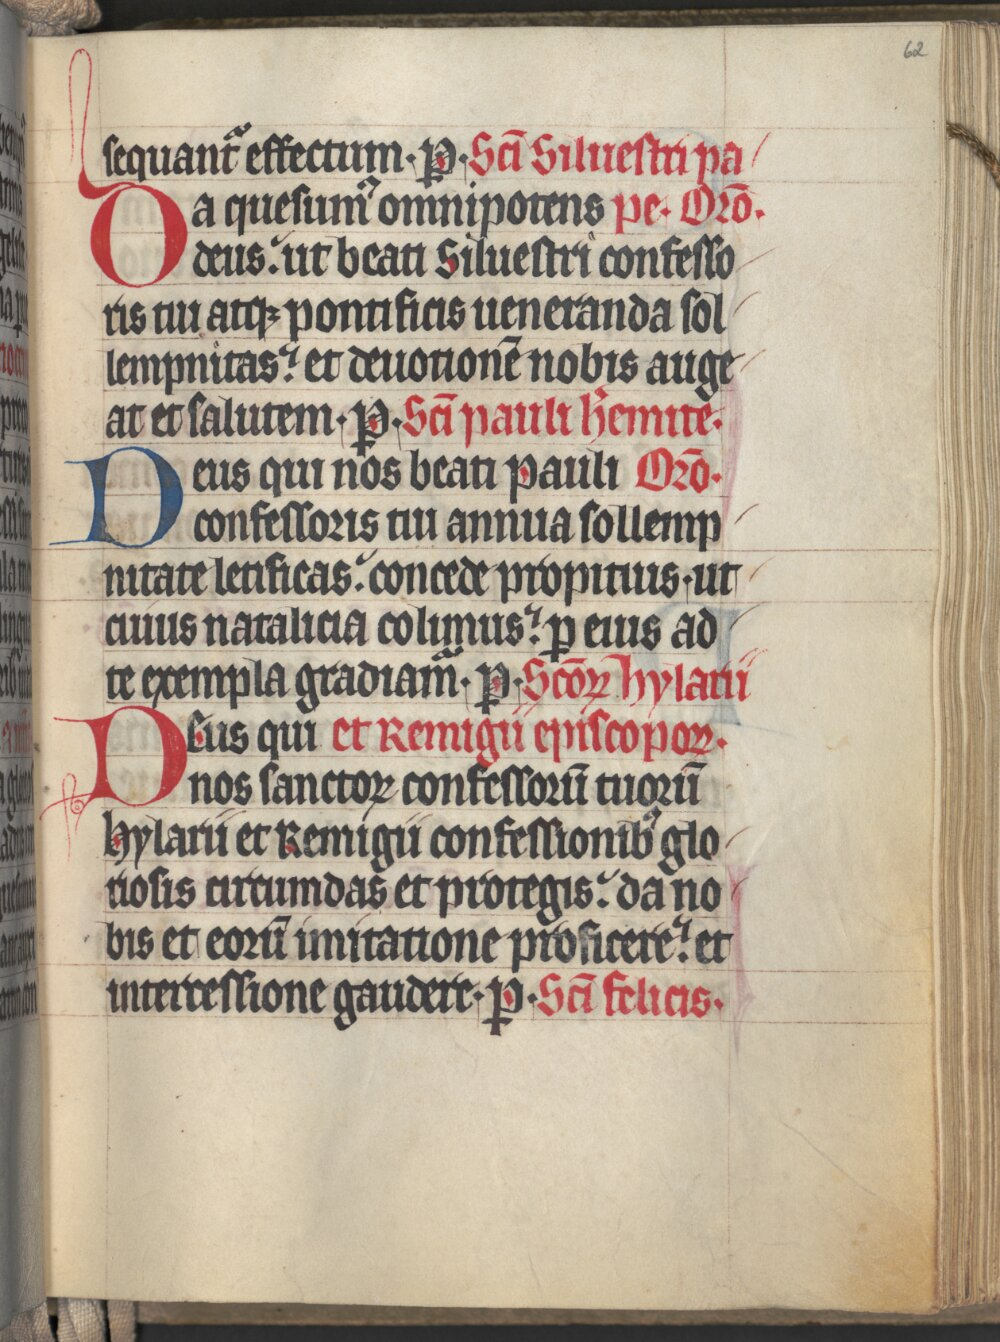 62
sequant᷑ effectum · p̄ · Sc̄i Siluestri pa
Da quesum᷒ omnipotens pe · Orō ·
deus : ut beati Siluestri confesso
ris tui atqꝫ pontificis ueneranda sol
lempnitas : et deuotionē nobis auge
at et salutem · p̄ · Sc̄i pauli h̄emite ·
Deus qui nos beati Pauli Orō ·
confessoris tui annua sollemp
nitate letificas : concede propitius · ut
cuius natalicia colimus : ꝑ eius ad
te exempla gradiam᷑ · p̄ · Sc̄oꝝ hylarii
Deus qui et Remigii episcopoꝝ ·
nos sanctoꝝ confessorū tuorū
Hylarii et Remigii confessionib᷒ glo
riosis circumdas et protegis : da no
bis et eorū imitatione proficere : et
intercessione gaudere · p̄ · Sc̄i felicis ·